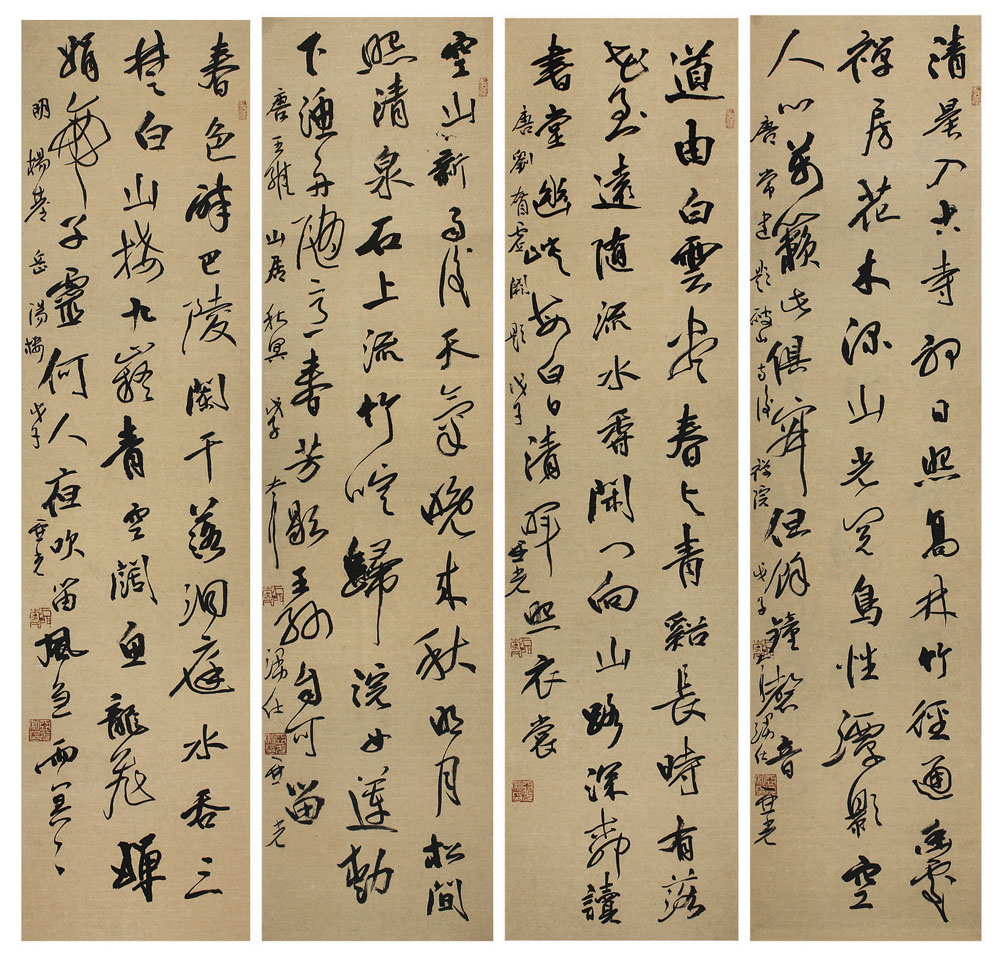 清晨入古寺初日照高林竹徑通幽處
禪房花木深山光悅鳥性潭影空
人心萬籟此俱寂但餘鐘磬音
唐 常建 題破山寺後禪院 戊子
道由白雲盡春與青谿長時有落
花至遠隨流水香閑門向山路深柳讀
書堂幽映每白日清輝照衣裳
唐 劉眘虛 闕題 戊子
空山新雨後天氣晚來秋明月松間
照清泉石上流竹喧歸浣女蓮動
下漁舟隨意春芳歇王孫自可留
唐 王維 山居秋冥 戊子
春色醉巴陵闌干落洞庭水吞三
楚白山接九嶷青空闊魚龍舞嬋
娟帝子靈何人夜吹笛風急雨冥冥
明 楊基 岳陽樓 戊子